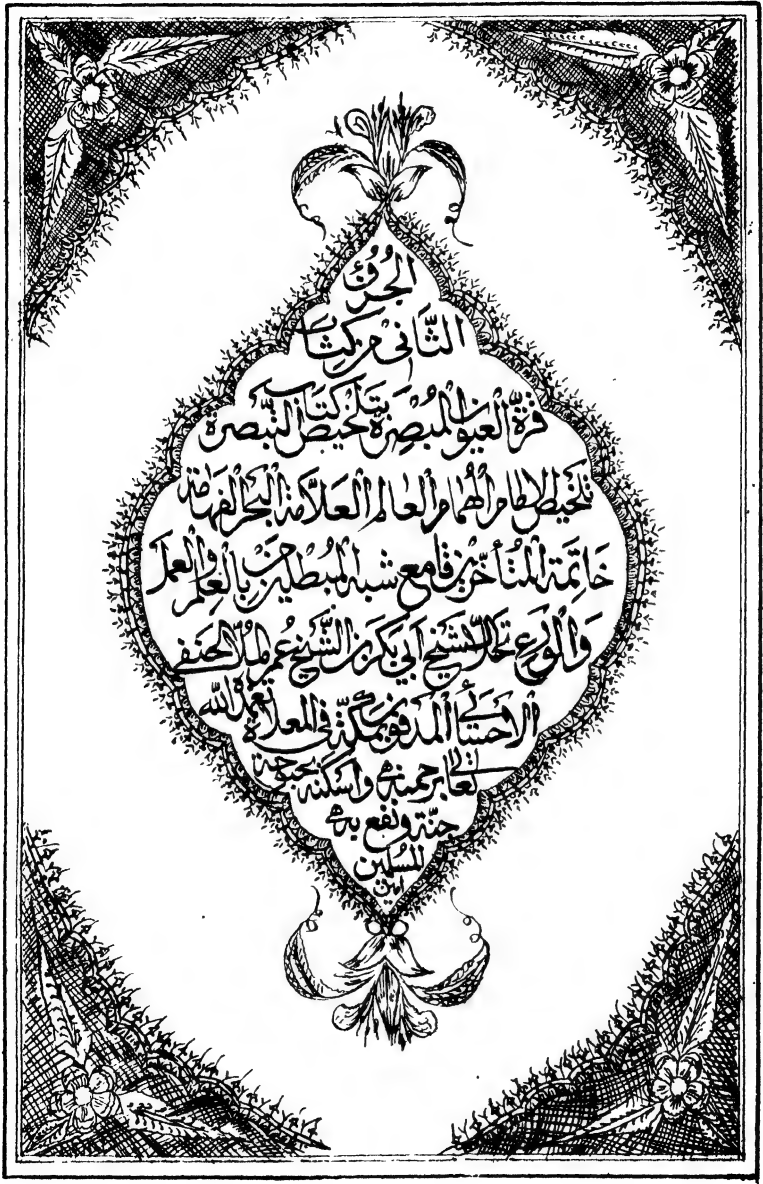 الجُزءُ
الثَّاني من كتاب
قرَّة العيون المُبصِرة بتلخيص كتاب التّبصرة
تلخيص الإمام الهُمام العالم العلَّامة البحر الفهّامة
خاتمة المتأخّرين قامع شبه المُبطلين من بالعِلم والعمل
والورع تحلّى الشيخ أبي بكر بن الشّيخ عُمر المُلّا الحنفي
الأحسائي المدفون بمكّة في المعلاة تغمده الله
تعالى برحمته وأسكنه بحبوحة
جنّة ونفع به
المسلمين
امين